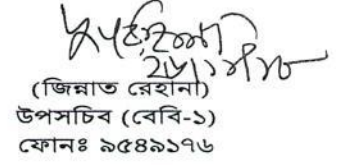 (জিন্নাত রেহানা)
উপসচিব (বেবি-১)
ফোনঃ ৯৫৪৯১৭৬